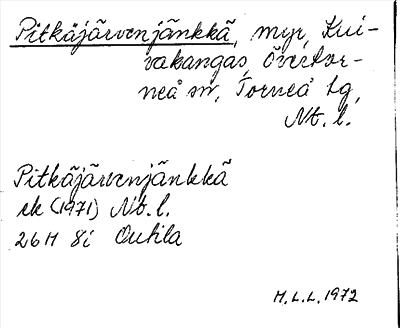 Pitkäjärvenjänkkä, myr, Kui-
vakangas, Övertor-
neå sn, Torneå tg,
Nb. l.
Pitkäjärvenjänkkä
ek (1971) Nb. l.
26H 8i Outila
M.L.L. 1972